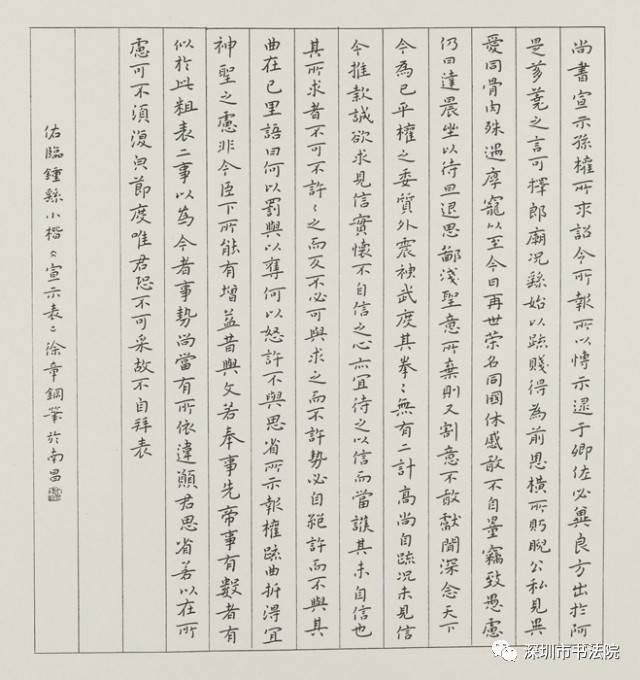 尚書宣示孫權所求詔令所報所以博示逮于卿佐必冀良方出於阿
是芻蕘之言可擇郎廟况繇始以疏賤得為前恩橫所盻睨公私見異
愛同骨肉殊遇厚寵以至今日再世榮名同國休慼敢不自量竊致愚慮
仍日達晨坐以待旦退思鄙淺聖意所棄則又割意不敢獻聞深念天下
今為已平權之委質外震神武度其拳〻無有二計高尚自疏况未見信
今推款誠欲求見信實懷不自信之心亦宜待之以信而當護其未自信也
其所求者不可不許〻之而反不必可與求之而不許勢必自絕許而不與其
曲在已里語曰何以罰與以奪何以怒許不與思省所示報權疏曲折得宜
神聖之慮非今臣下所能有增益昔與文若奉事先帝事有數者有
似於此粗表二事以為今者事勢尚當有所依違願君思省若以在所
慮可不須復皃節度唯君恐不可采故不自拜表
佑臨鍾繇小楷《宣示表》徐章鋼筆於南昌
深圳市书法院